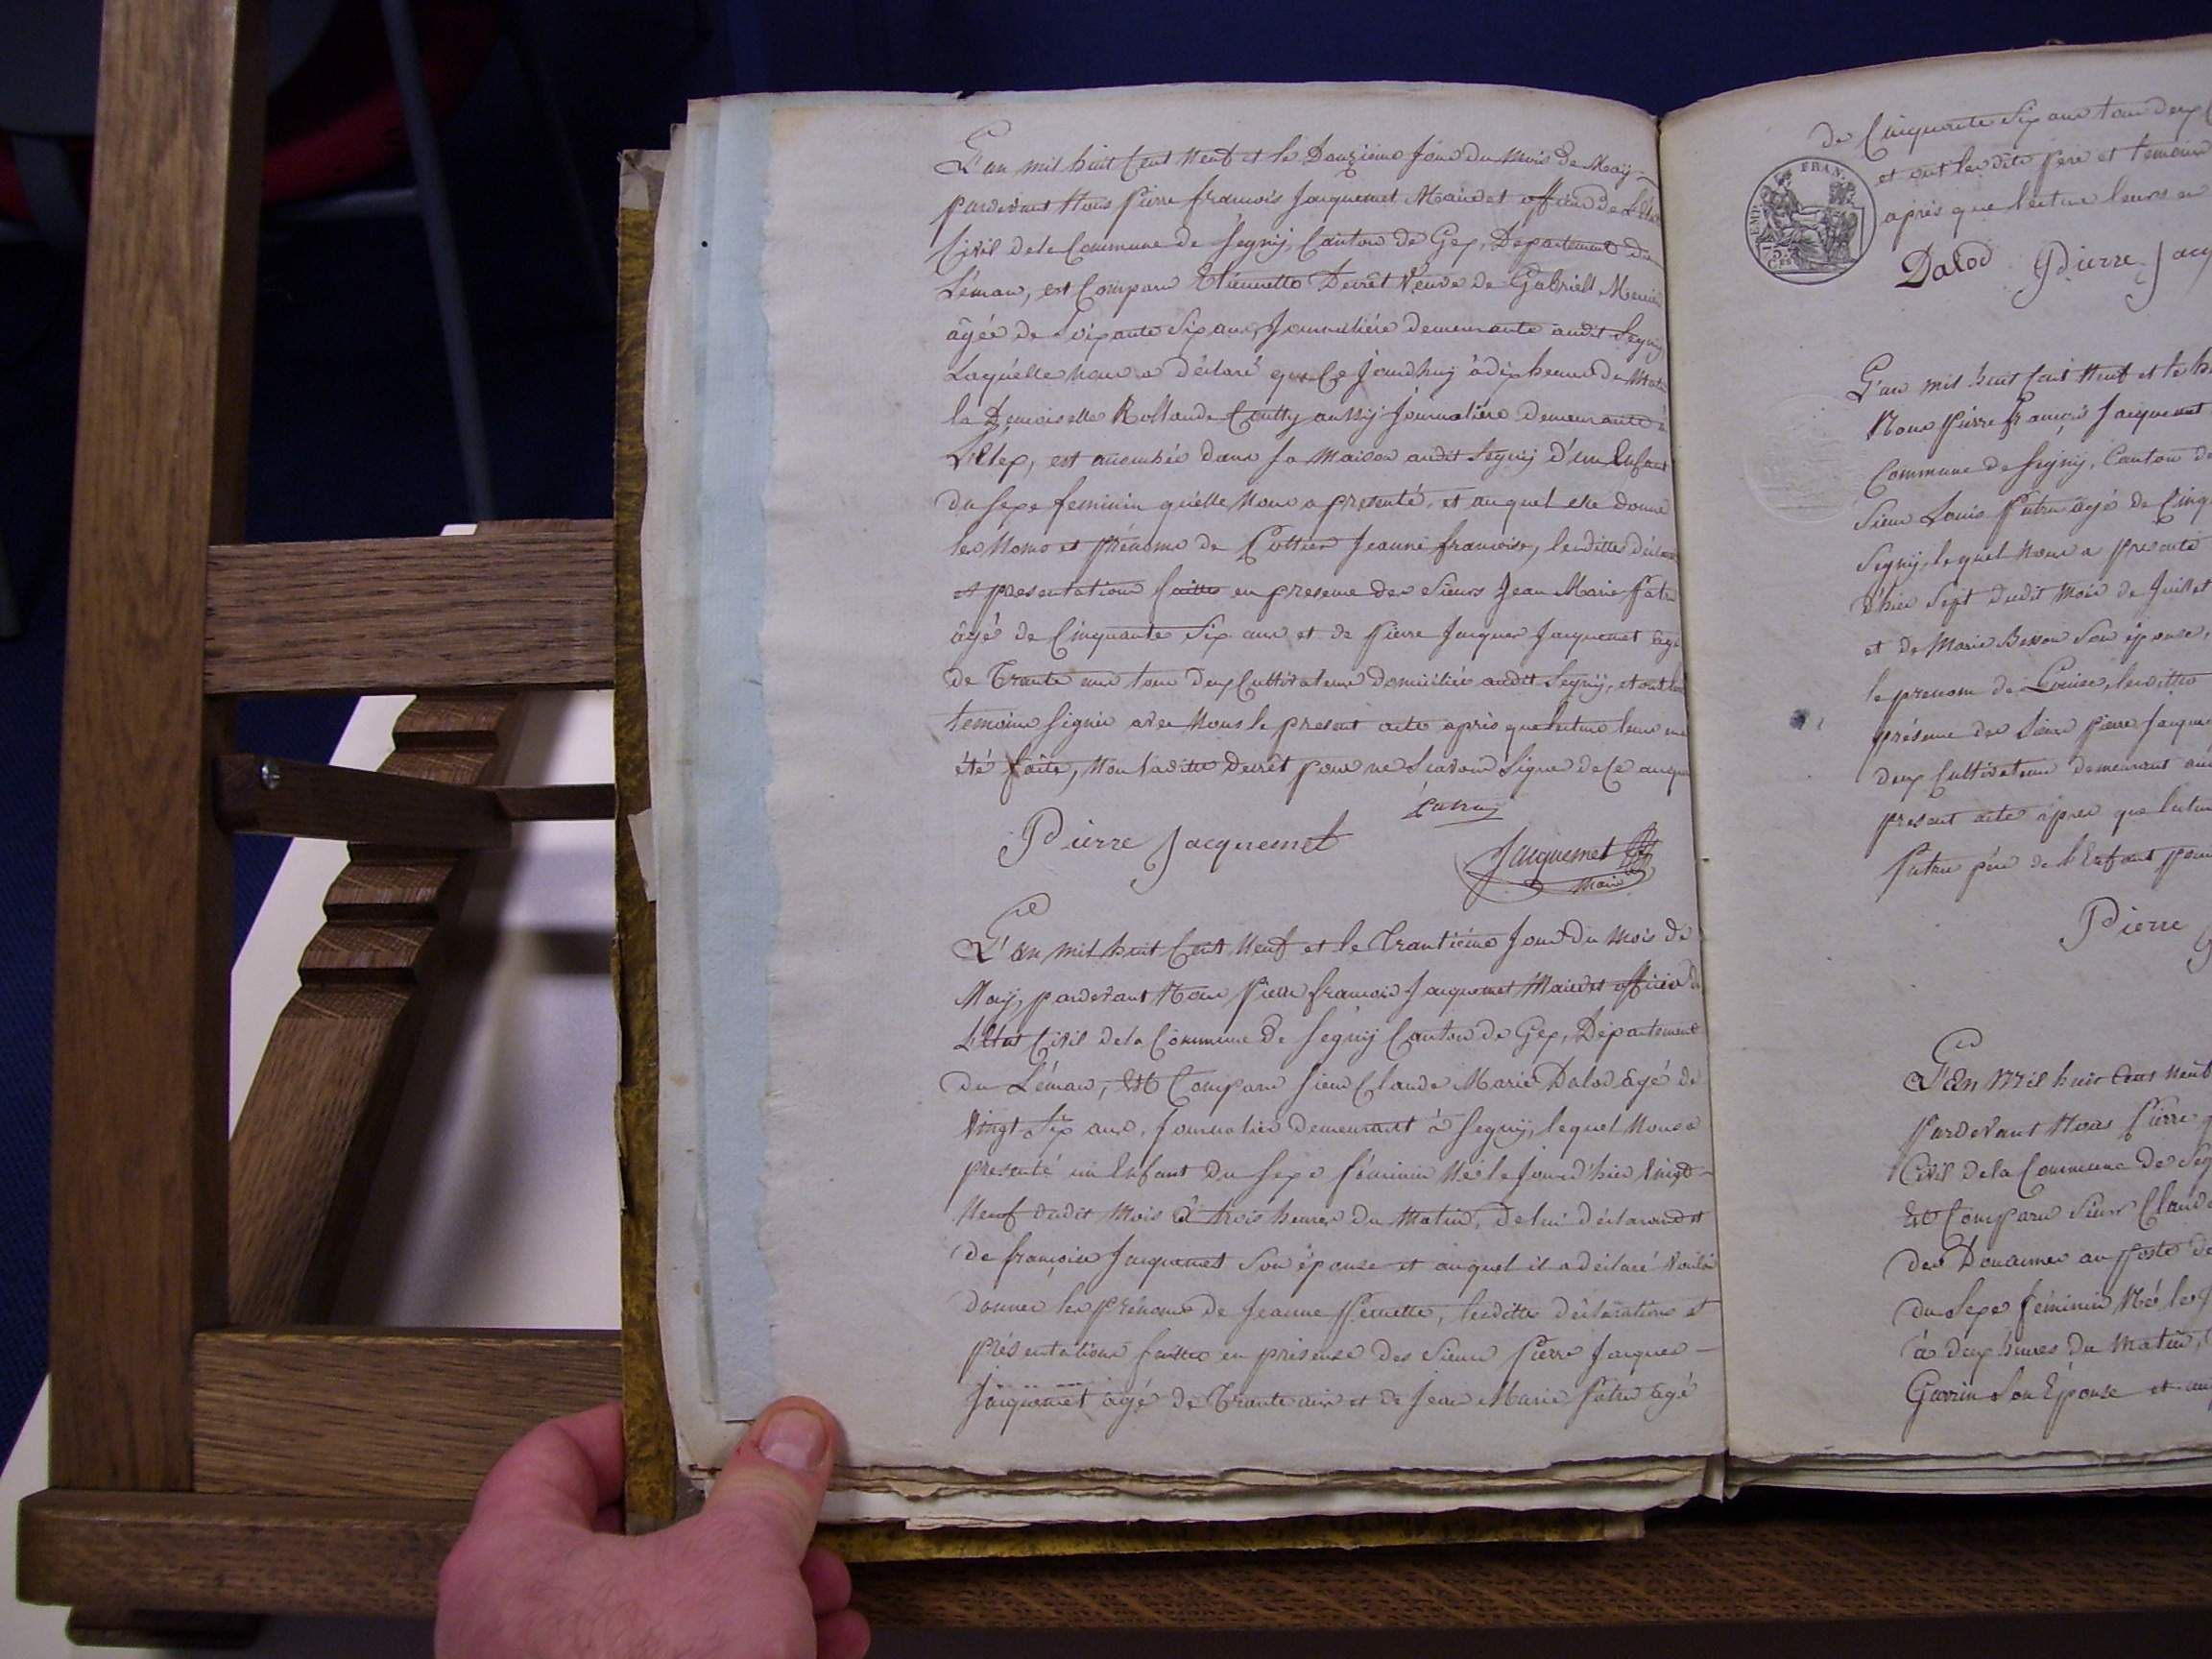 L'an mil huit Cent Neuf et le Douzième Jour du Mois de May
pardevant Nous Pierre françois Jacquemet Maire et officier de L'Etat
Civil de la Commune de Segny, Canton de Gex, Departement du
Léman, est Comparu Etiennette Decrêt Veuve de Gabriell
âgée de Soixante Six ans, Journalière demeurante audit Segny
Laquélle nous a déclaré que Ce Jourdhuy à dix heures du Matin
la Demoiselle Rollande aussy Journalière demeurante à
L'Elex, est accouchée dans Sa Maison audit Segny d'un Enfant
du Sexe feminin qu'elle Nous a presenté, et auquel elle donne
les Noms et Prénoms de Cottier Jeanne françoise, lesdittes
et presentations faittes en presence des Sieurs Jean Marie
âgé de Cinquante Six ans et de Pierre Jacques Jacquemet agé
de Trante ans tous deux Cultivateurs domiciliés audit Segny, et ont les
temoins Signés avec Nous le present acte après que lecture leurs en a
été faite, Non laditte Decrêt pour ne Scavoir Signer de Ce
Pierre Jacquemet
Jacquemet
Maire
L'an mil huit Cent Neuf et le Trantième Jour du Mois de
May, pardevant Nous Pierre françois Jacquemet Maire et officier de
L'Etat Civil de la Commune de Segny Canton de Gex, Département
du Léman, Est Comparu Sieur Claude Marie Dalod agé de
Vingt Six ans, Journalier demeurant à Segny, lequel Nous a
presenté un Enfant du Sexe féminin Né le Jourd'hier Vingt
Neuf dudit Mois à trois heures du Matin, de lui déclarant et
de françoise Jacquemet Son épouse et auquel il a déclaré Vouloir
donner les Prénoms de Jeanne Pernette, lesdittes déclarations et
Présentations faittes en présence des Sieurs Pierre Jacques
Jacquemet agé de Trante ans et de Jean Marie agé
de Cinquante Six ans tous deux
et ont lesdits Pere et temoins
après que lecture leurs en
EMP. FRAN.
75
Dalod Pierre
L'an mil huit Cent Neuf et le
Nous Pierre françois Jacquemet
Commune de Segny, Canton de
Sieur Louis agé de
Segny, lequel Nous a presenté
d'hier Sept dudit Mois de Juillet
et de Marie Besson Son épouse,
le prenom de Louise, lesdittes
présence des Sieurs Pierre Jacques
deux Cultivateurs demeurant
présent acte après que lecture
père de l'Enfant pour
Pierre
L'An Mil huit Cent Neuf
Pardevant Nous Pierre
Civil de la Commune de
Est Comparu Sieur Claude
des Douannes au Poste de
du Sexe féminin Né le
à deux heures du Matin,
Son Epouse et